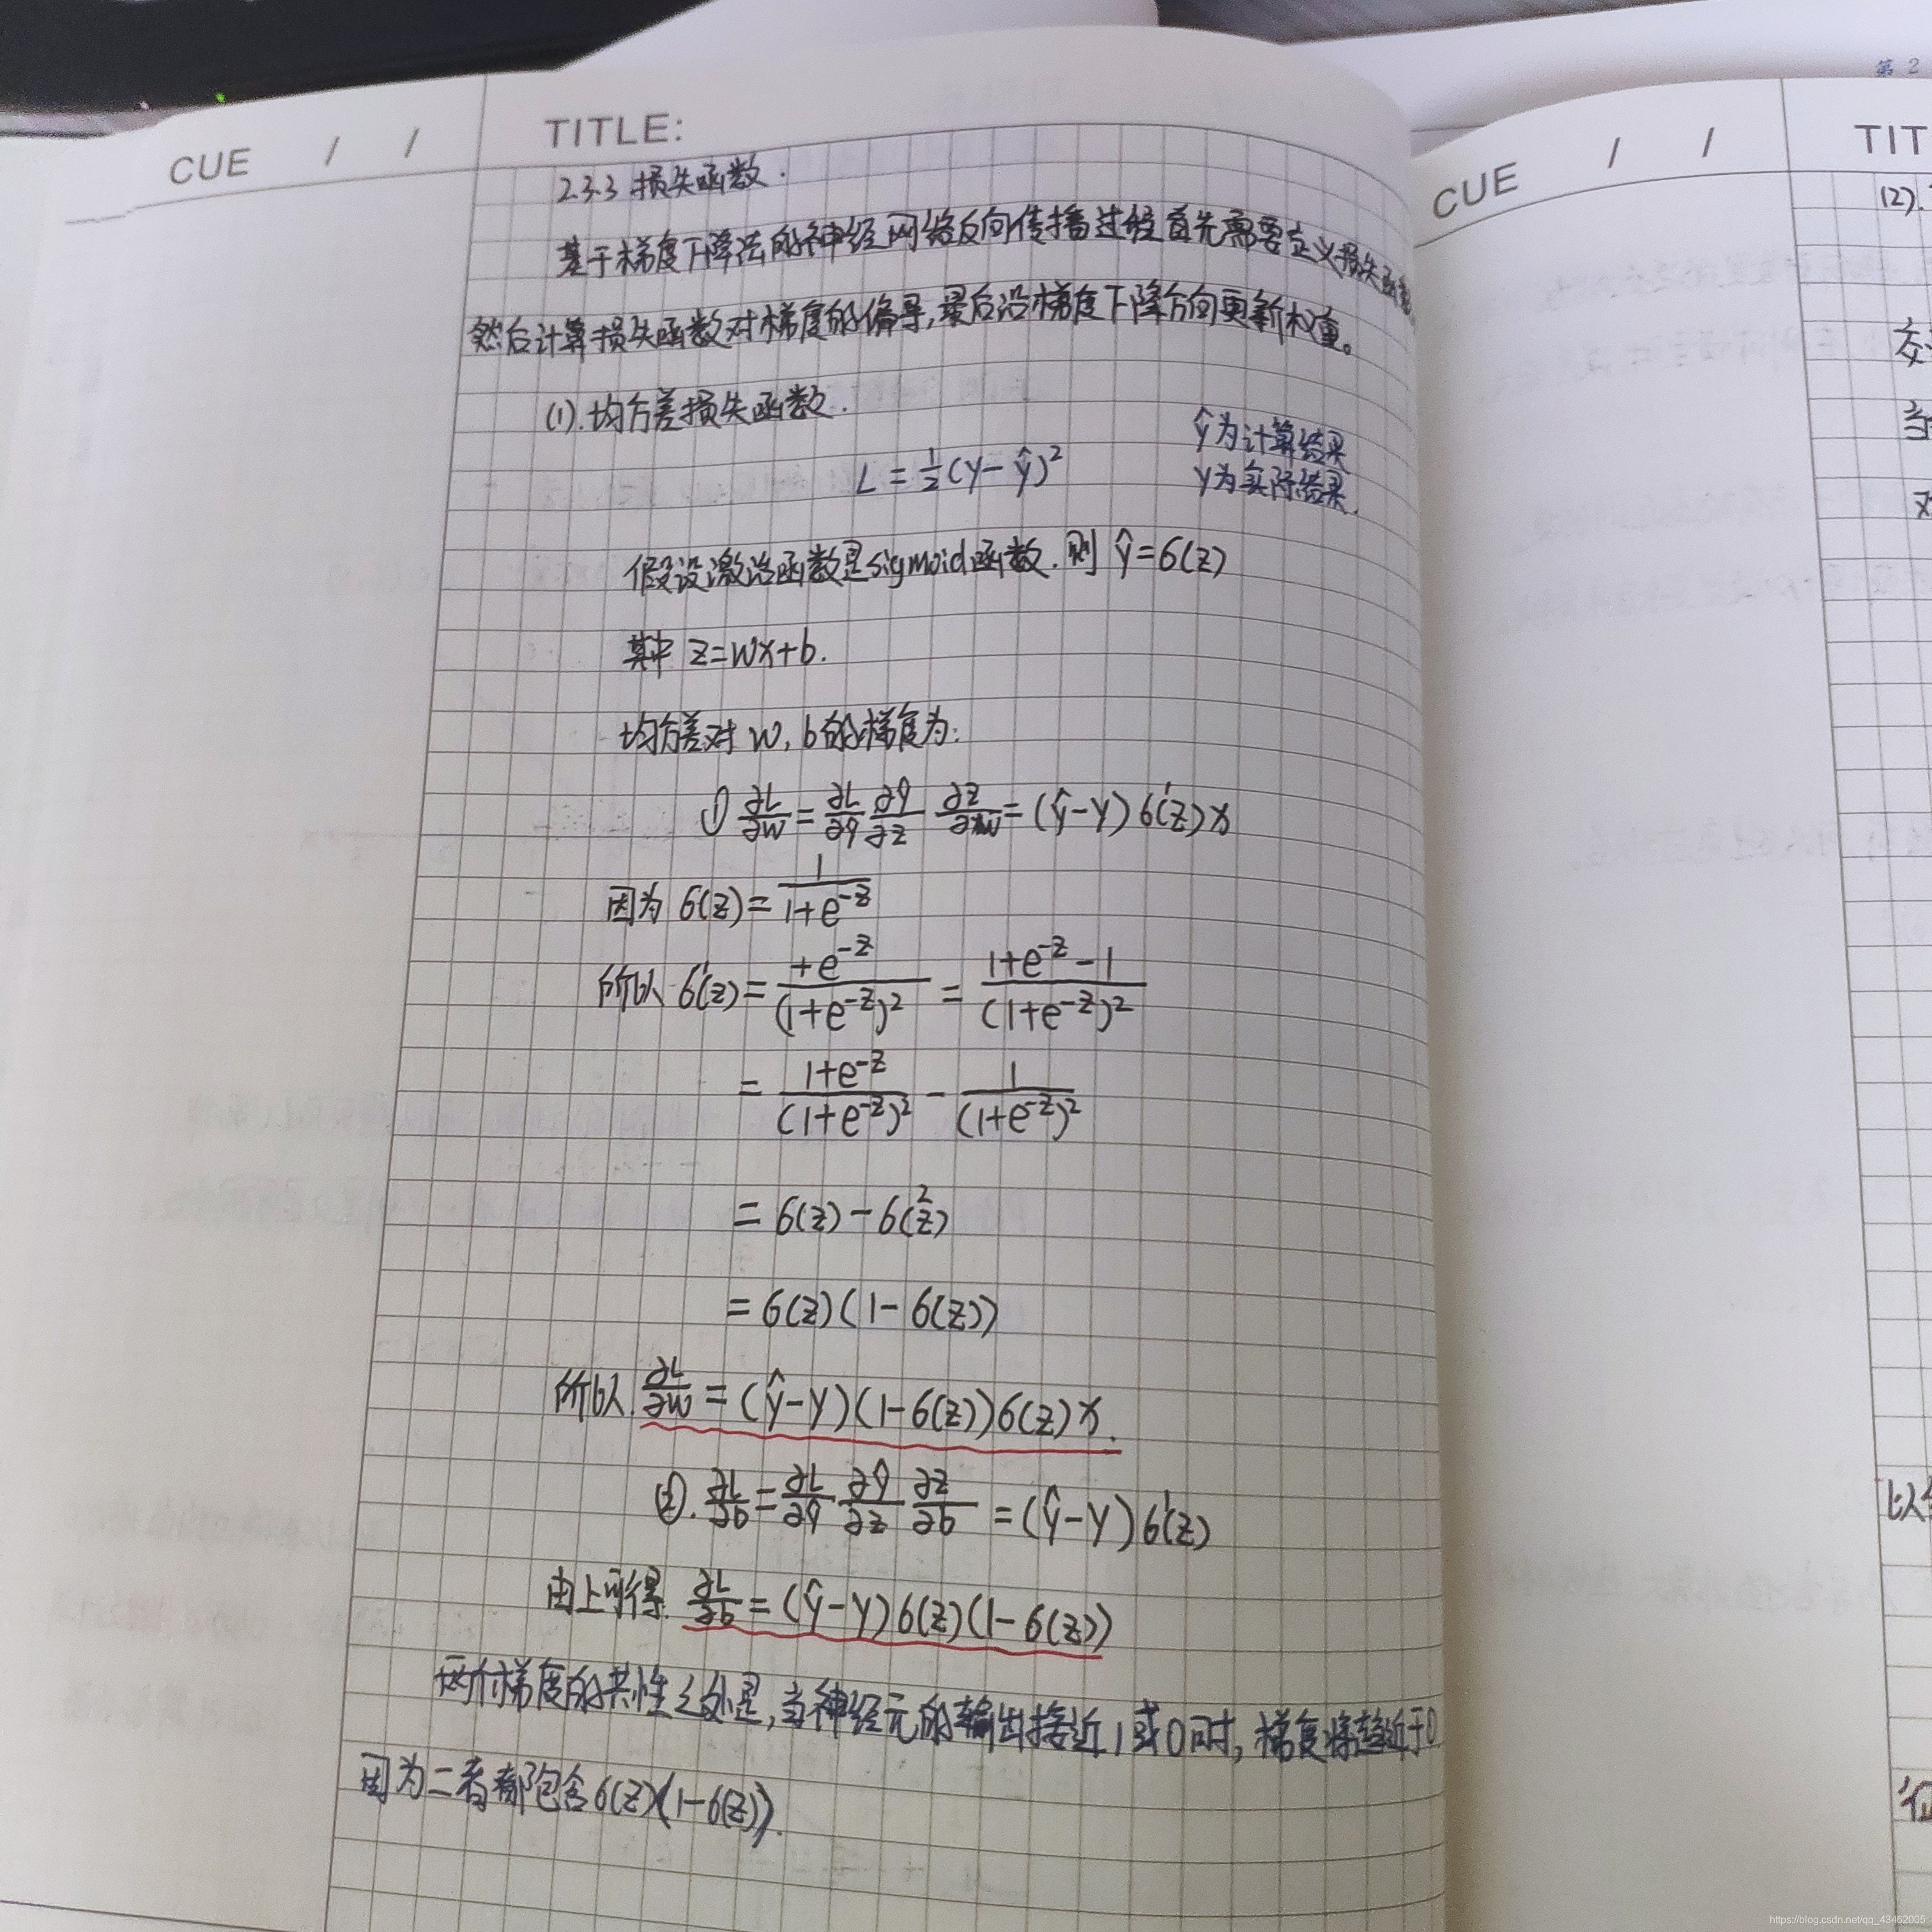 CUE / /
TITLE:
2.3.3 损失函数.
基于梯度下降法的神经网络反向传播过程首先需要定义损失函数,
然后计算损失函数对梯度的偏导,最后沿梯度下降方向更新权重。
(1).均方差损失函数.
L = ½(y-ŷ)²
ŷ为计算结果
y为实际结果.
假设激活函数是sigmoid函数.则 ŷ=6(z)
其中 z=wx+b.
均方差对 w,b的梯度为:
① ∂L/∂w = ∂L/∂ŷ ∂ŷ/∂z ∂z/∂w = (ŷ-y)6'(z)x
因为 6(z)= 1/(1+e^-z)
所以 6'(z)= +e^-z/(1+e^-z)² = (1+e^-z -1)/(1+e^-z)²
= (1+e^-z)/(1+e^-z)² - 1/(1+e^-z)²
= 6(z)-6²(z)
= 6(z)(1-6(z))
所以 ∂L/∂w = (ŷ-y)(1-6(z))6(z)x.
②. ∂L/∂b = ∂L/∂ŷ ∂ŷ/∂z ∂z/∂b = (ŷ-y)6'(z)
由上可得. ∂L/∂b = (ŷ-y)6(z)(1-6(z))
两个梯度的共性之处是,当神经元的输出接近1或0时,梯度将趋近于0
因为二者都包含6(z)(1-6(z)).
第 2
CUE / /
TIT
(2).
交
当
对
以
https://blog.csdn.net/qq_43462005